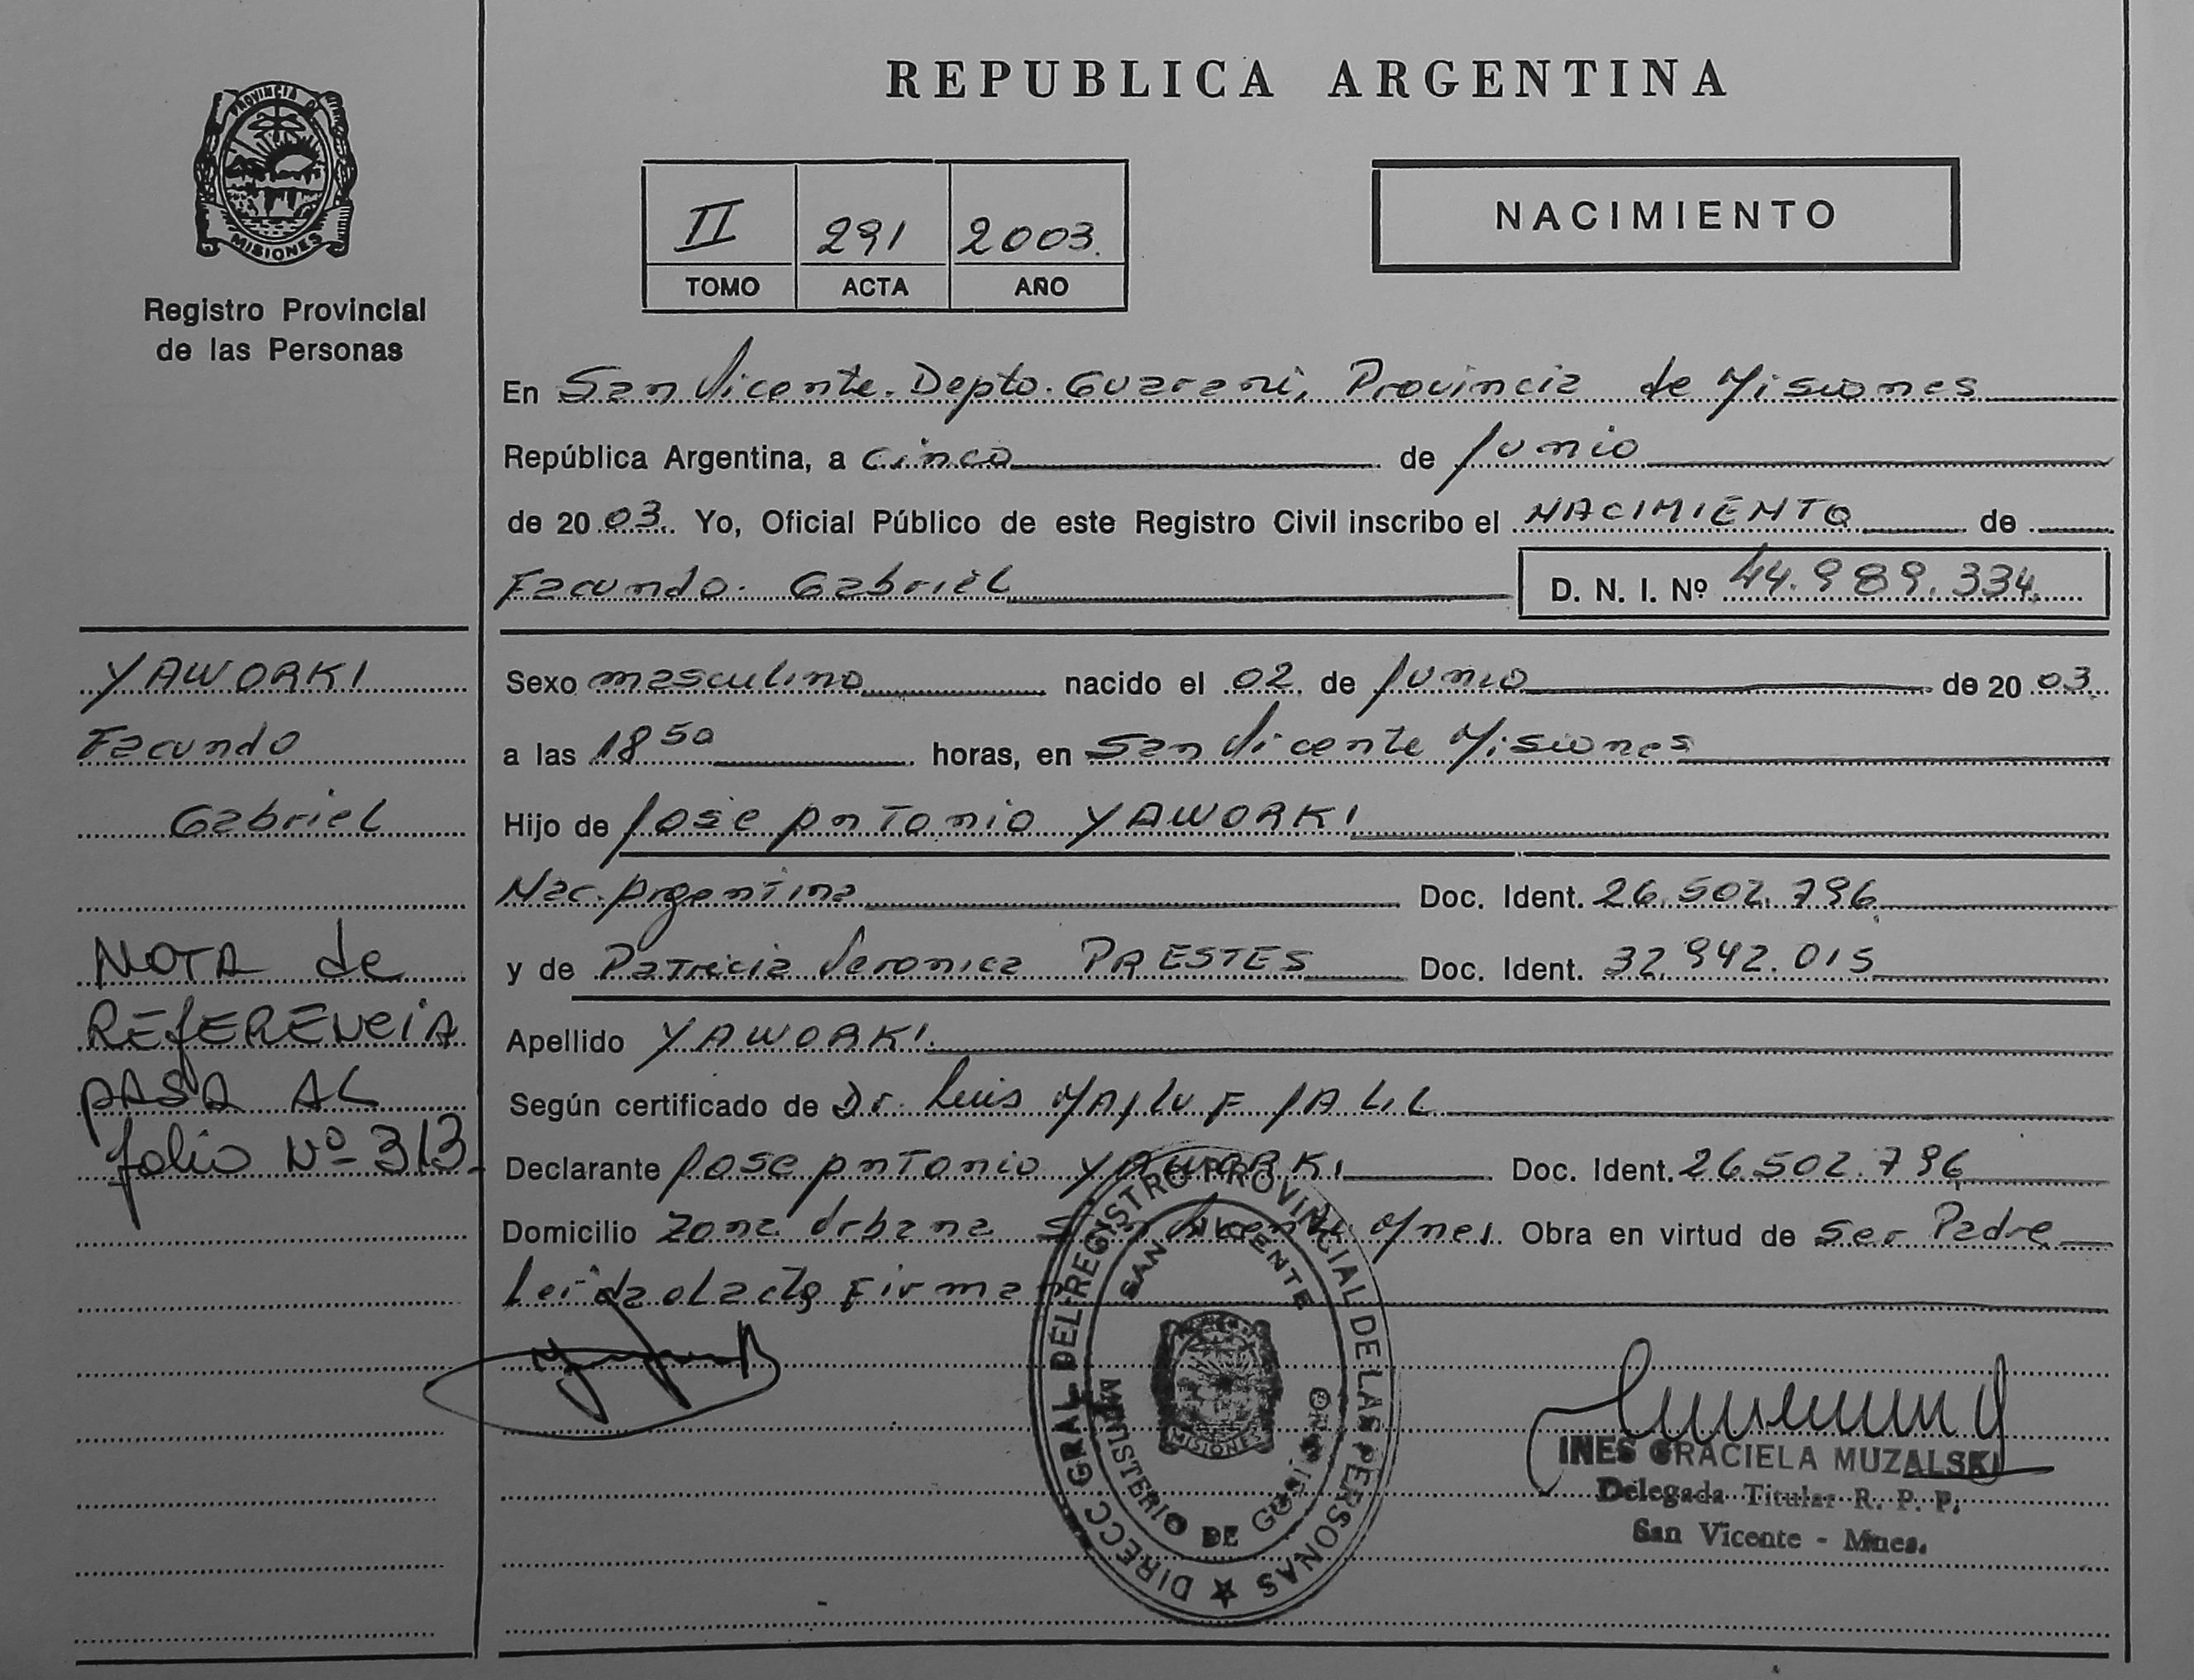 REPUBLICA ARGENTINA
PROVINCIA D
MISIONES
Registro Provincial
de las Personas
II 291 2003.
TOMO ACTA AÑO
NACIMIENTO
En San Vicente. Depto. Guarani, Provincia de Misiones
República Argentina, a cinco de Junio
de 20 03. Yo, Oficial Público de este Registro Civil inscribo el NACIMIENTO de
Facundo Gabriel D. N. I. Nº 44.989.334
YAWORKI
Facundo
Gabriel
NOTA de
REfERENciA
PASA AL
folio Nº 313.
Sexo masculino nacido el 02 de Junio de 20 03.
a las 18 50 horas, en San Vicente Misiones
Hijo de Jose Antonio YAWORKI
Nac. Argentina Doc. Ident. 26.502.796
y de Patricia Veronica PRESTES Doc. Ident. 32.942.015
Apellido YAWORKI.
Según certificado de Dr. Luis JALIL
Declarante Jose Antonio YAWORKI Doc. Ident. 26.502.796
Domicilio Zona Urbana San Vicente Mnes. Obra en virtud de ser Padre
Leida el acta Firman
DIRECC GRAL DEL REGISTRO PROVINCIAL DE LAS PERSONAS
SAN VICENTE
MINISTERIO DE GOBIERNO
MISIONES
INES GRACIELA MUZALSKI
Delegada Titular R. P. P.
San Vicente - Mnes.